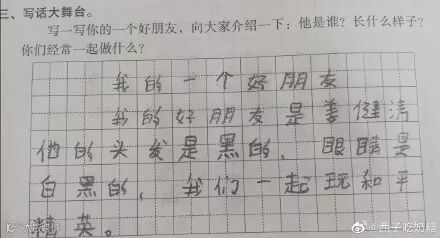 三、写话大舞台。
写一写你的一个好朋友，向大家介绍一下：他是谁？长什么样子？
你们经常一起做什么？
我的一个好朋友
我的好朋友是姜健清
他的头发是黑的，眼睛是
白黑的，我们一起玩和平
精英。
@西子吃奶糖